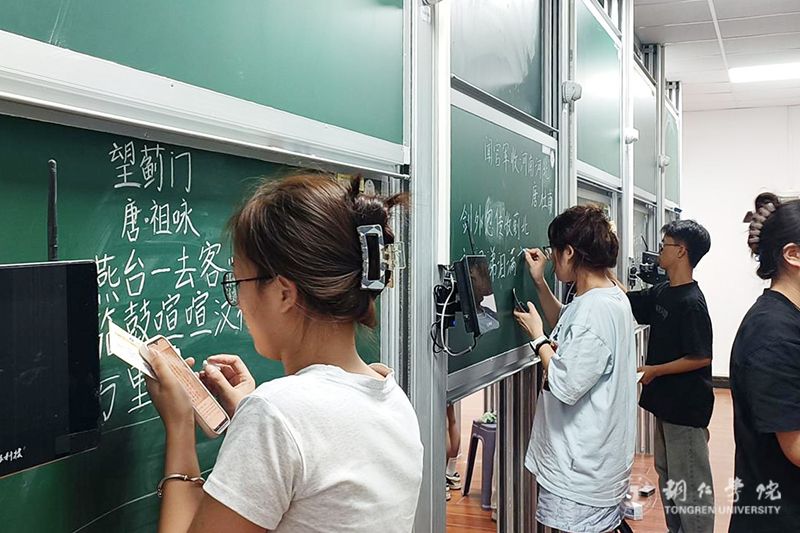 望蓟门
唐·祖咏
燕台一去客
鼓喧喧汉
万里
闻官军收河南河北
唐·杜甫
剑外忽传收 北
满
科技
铜仁学院
TONGREN UNIVERSITY